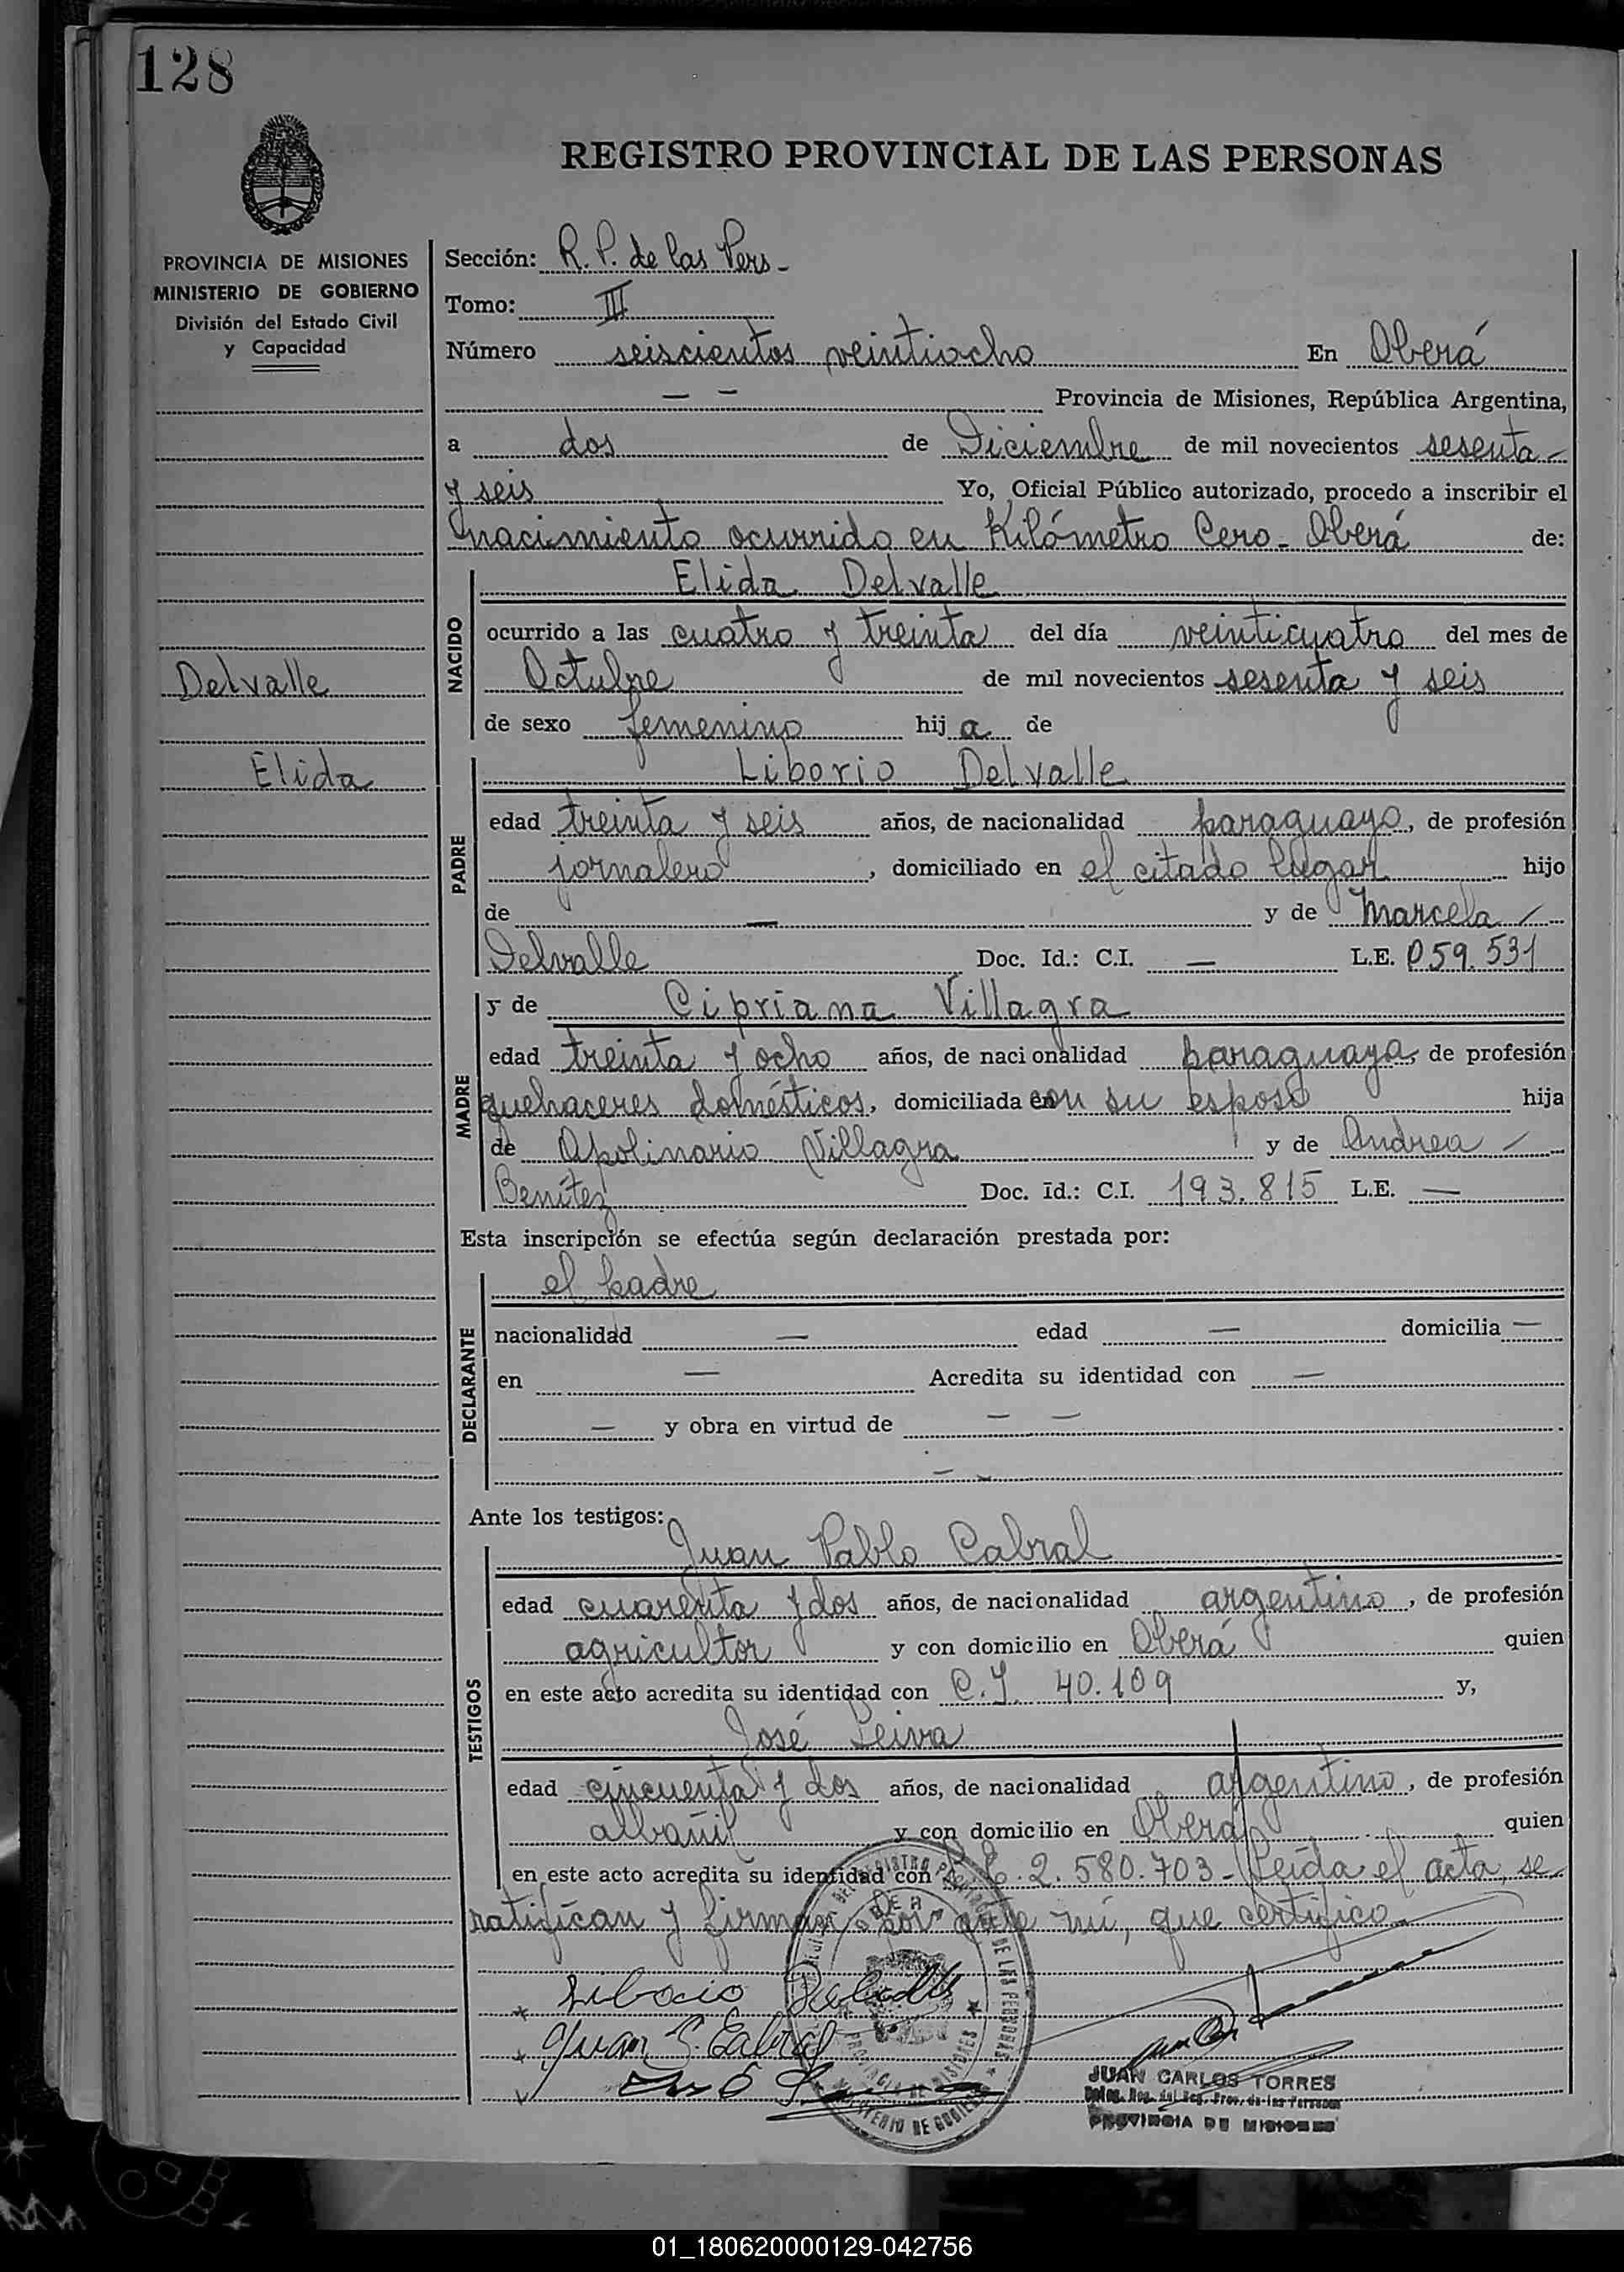 128
REGISTRO PROVINCIAL DE LAS PERSONAS
PROVINCIA DE MISIONES
MINISTERIO DE GOBIERNO
División del Estado Civil
y Capacidad
Delvalle
Elida
Sección: R. P. de las Pers -
Tomo: III
Número seiscientos veintiocho En Oberá
— — Provincia de Misiones, República Argentina,
a dos de Diciembre de mil novecientos sesenta -
y seis Yo, Oficial Público autorizado, procedo a inscribir el
nacimiento ocurrido en Kilómetro Cero - Oberá de:
NACIDO
Elida Delvalle
ocurrido a las cuatro y treinta del día veinticuatro del mes de
Octubre de mil novecientos sesenta y seis
de sexo femenino hija de
PADRE
Liborio Delvalle
edad treinta y seis años, de nacionalidad paraguayo, de profesión
jornalero, domiciliado en el citado lugar hijo
de — y de Marcela /
Delvalle Doc. Id.: C.I. — L.E. 059.531
MADRE
y de Cipriana Villagra
edad treinta y ocho años, de nacionalidad paraguaya, de profesión
quehaceres domésticos, domiciliada con su esposo hija
de Apolinario Villagra y de Andrea /
Benítez Doc. Id.: C.I. 193.815 L.E. —
Esta inscripción se efectúa según declaración prestada por:
DECLARANTE
el padre
nacionalidad — edad — domicilia —
en — Acredita su identidad con —
— y obra en virtud de — —
— -
Ante los testigos:
TESTIGOS
Juan Pablo Cabral
edad cuarenta y dos años, de nacionalidad argentino, de profesión
agricultor y con domicilio en Oberá quien
en este acto acredita su identidad con C.I. 40.109 y,
José Leiva
edad cincuenta y dos años, de nacionalidad argentino, de profesión
albañil y con domicilio en Oberá quien
en este acto acredita su identidad con L.E. 2.580.703 - Leída el acta, se
ratifican y firman por ante mí, que certifico
Liborio Delvalle
Juan P. Cabral
DE LAS PERSONAS
PROVINCIA DE MISIONES
MINISTERIO DE GOBIERNO
JUAN CARLOS TORRES
Deleg. Reg. del Reg. Prov. de las Personas
PROVINCIA DE MISIONES
01_180620000129-042756